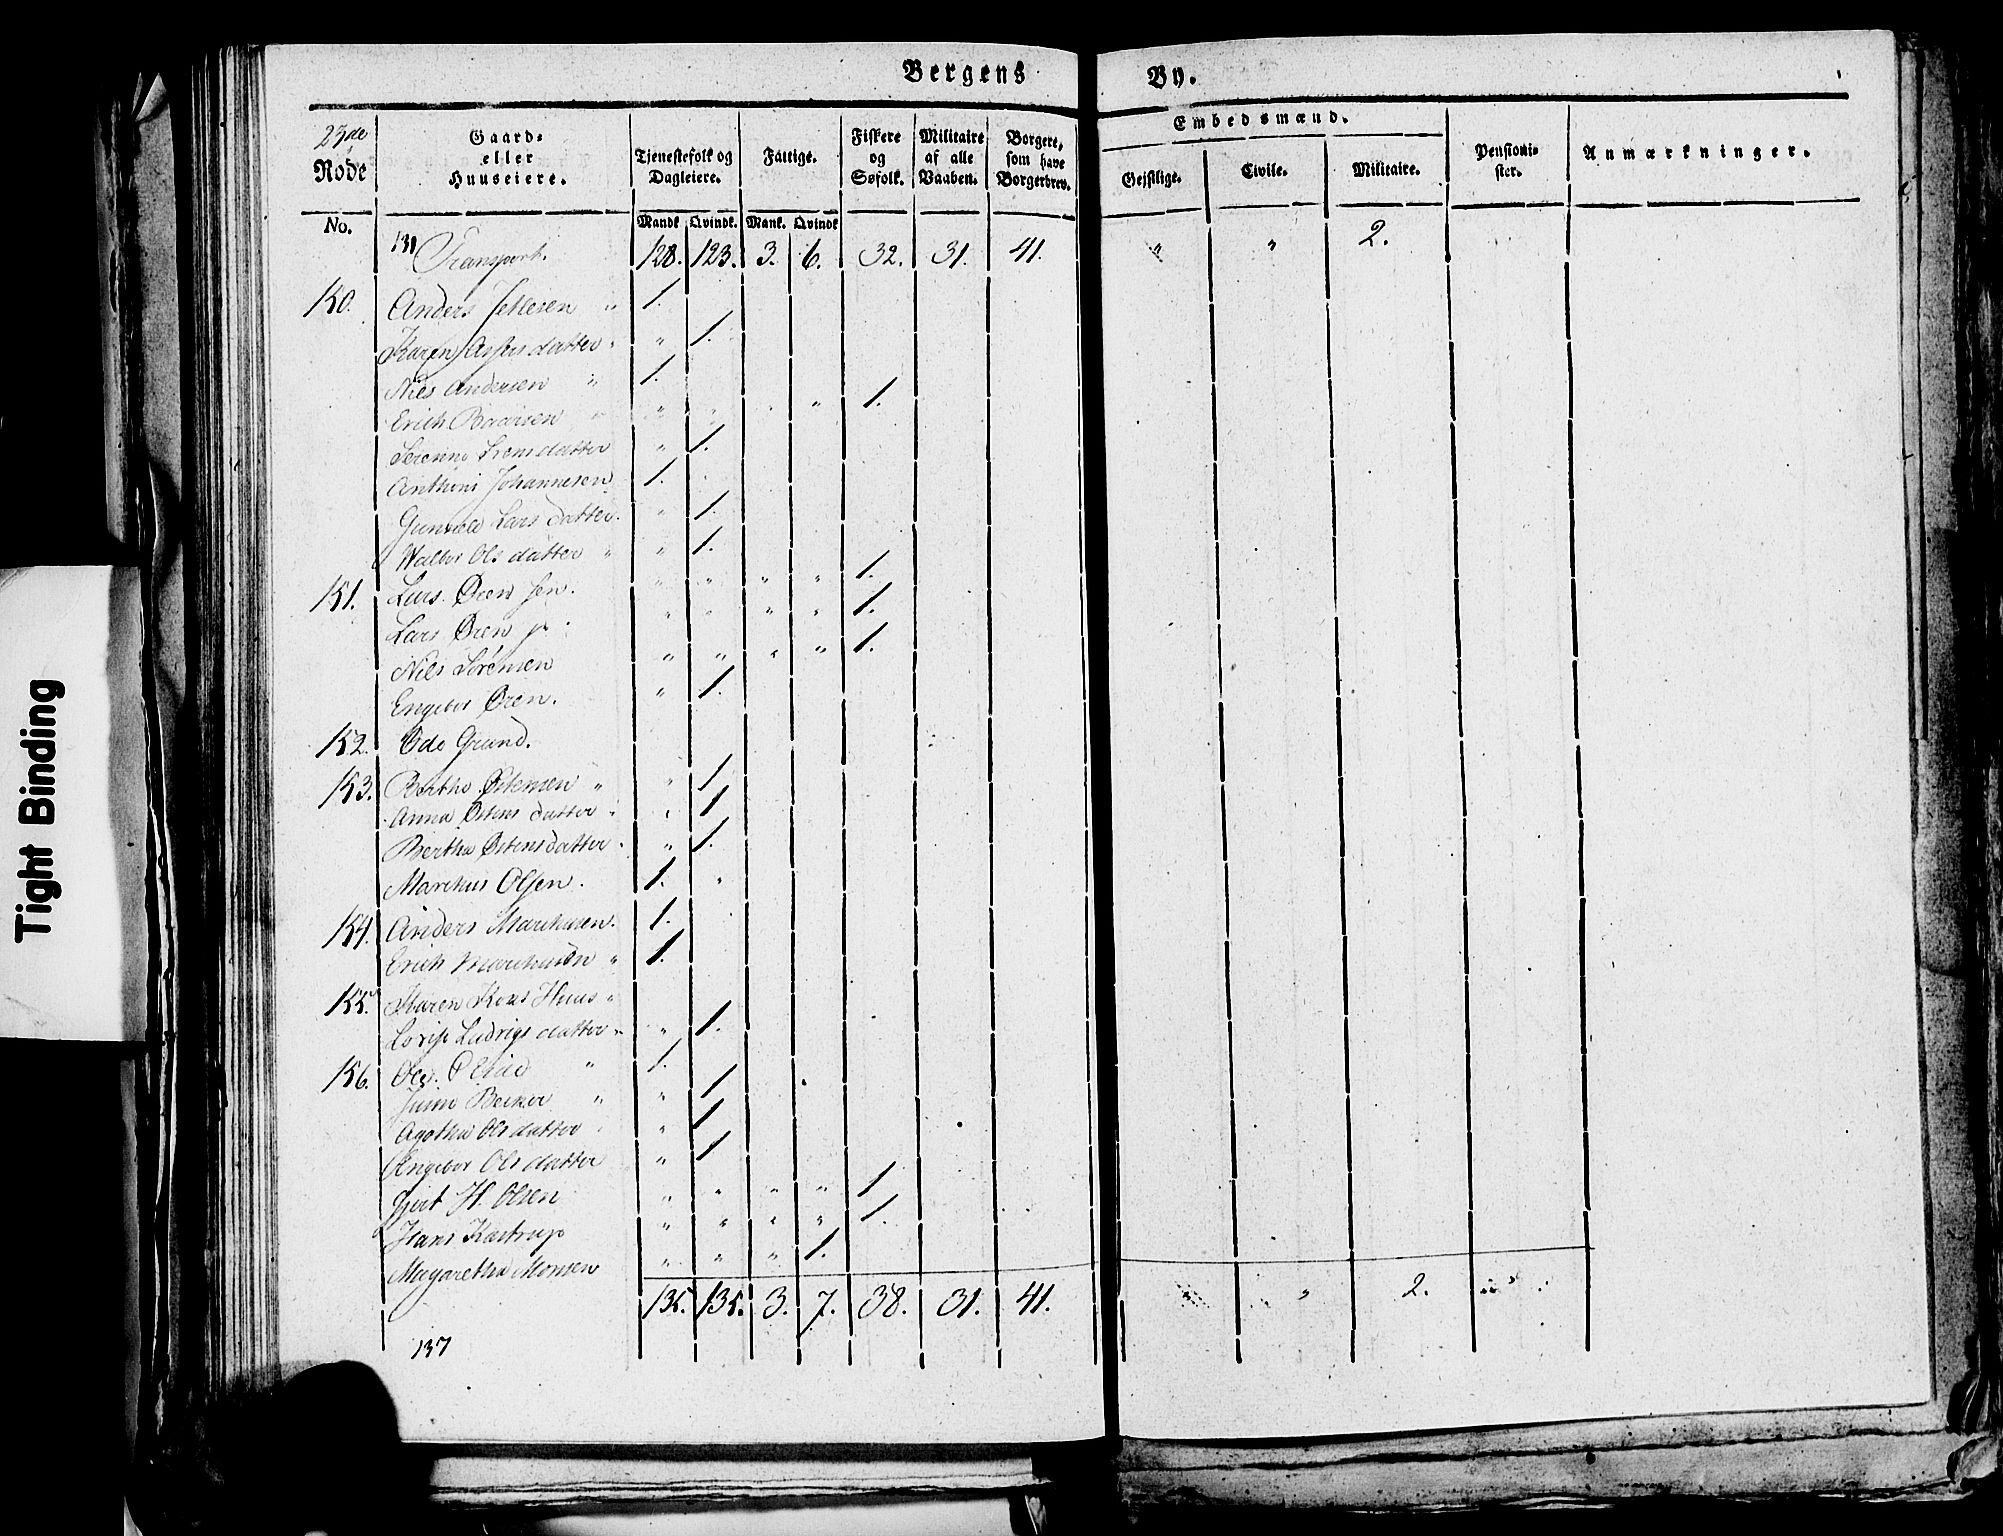 Tight Binding
Bergens By.
23de Rode
Gaard- eller Huuseiere.
Tjenestefolk og Dagleiere.
Fattige.
Fiskere og Søfolk.
Militaire af alle Vaaben.
Borgere, som have Borgerbrev.
Embedsmænd.
Gejstlige.
Civile.
Militaire.
Pensionister.
Anmærkninger.
No.
Mandk. Qvindk. Mank. Qvindk
131 Transport. 128. 123. 3. 6. 32. 31. 41. " " 2.
150. Anders " 1.
Karen datter " " 1.
Nils Andersen " 1.
Erich " " " " 1.
datter " 1.
Anthoni Johannesen 1.
Lars datter. " 1.
Ols datter " " 1.
151. Lars Øren sen. " " " " 1.
Lars Øren jr. " " " " 1.
Nils Sørensen " " " " 1.
Engebor Øren. " 1.
152. Ode Grund.
153. Berthe Østensen " " 1.
Anna Østens datter " " 1.
Bertha Østensdatter " " 1.
Marchus Olsen. 1. "
154. Anders Marchusen. 1.
Erich Marchusen " 1.
155. Karen Huus "
Ludvigs datter " " 1.
156. Ole " 1.
Becker " " 1.
Agotha Ols datter " " 1.
Engebor Ols datter " 1.
Gjert H. Olsen " " " " 1.
Hans Kastrup " " " " 1.
Magaretha Monsen " " " 1.
135. 135. 3. 7. 38. 31. 41. " " 2. "
137